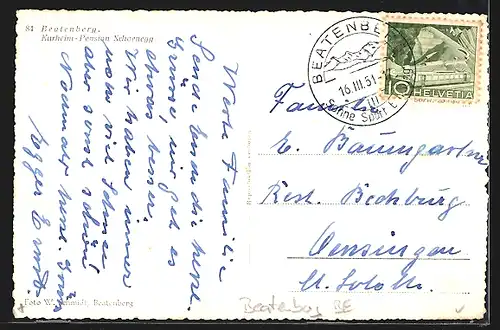 84 Beatenberg.
Kurheim-Pension Schönegg
Werte Familie
Sende Euch die herzl.
Grüsse, mir geht es
etwas besser.
Wir haben immer
noch viel Schnee
aber sonst schön
Nochmals herzl. Grüss
Ernst
Foto W. Schmidt, Beatenberg
BEATENBE
16.III.51
Sonne Sport
10
HELVETIA
Familie
E. Baumgartner
Rest. Bechburg
Oensingen
Kt. Soloth.
Beatenberg BE